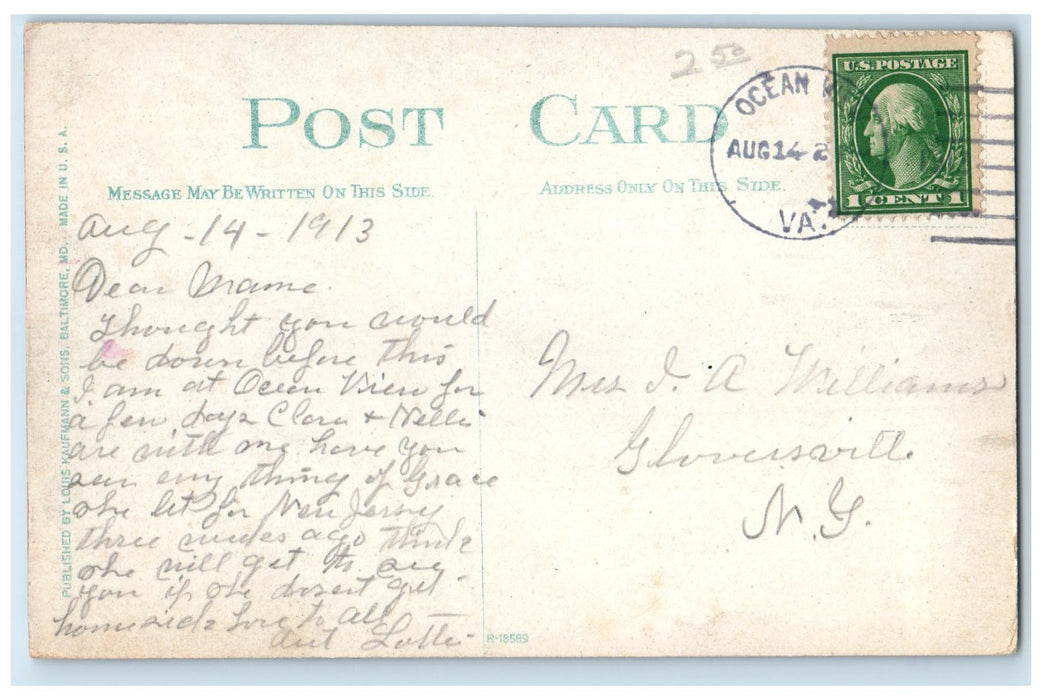 2 50
POST CARD
OCEAN
AUG 14 2
VA.
U.S. POSTAGE
1 CENT 1
MESSAGE MAY BE WRITTEN ON THIS SIDE.
ADDRESS ONLY ON THIS SIDE.
PUBLISHED BY LOUIS KAUFMANN & SONS, BALTIMORE, MD. MADE IN U. S. A.
Aug - 14 - 1913
Dear Mame.
Thought you would
be down before this
I am at Ocean View for
a few days Clara & Nellie
are with me have you
seen any thing of Grace
she left for New Jersey
three weeks ago think
she will get to see
you if she dosent get
homesick Love to All
Aut Lottie
Mrs I. A Williams
Gloversville
N. Y.
R-18589